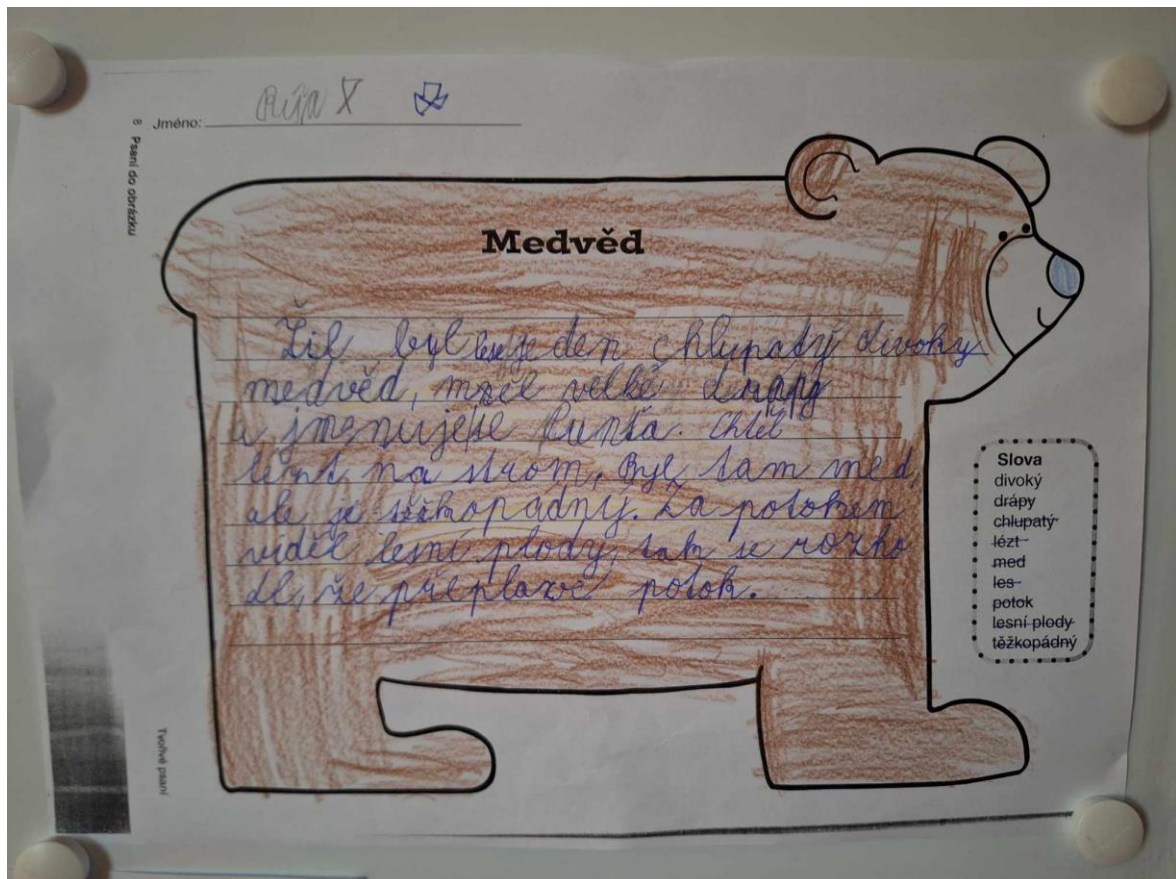 Jméno: Růja X
8 Psaní do obrázku
Medvěd
Žil byl jeden chlupatý divoky
medvěd, měl velké drápy
a jmenuje se Punťa. Chtěl
lézt na strom, Byl tam med,
ale je těžkopadný. Za potokem
viděl lesní plody, tak se rozho
dl, že přeplave potok.
Slova
divoký
drápy
chlupatý
lézt
med
les
potok
lesní plody
těžkopádný
Tvořivé psaní